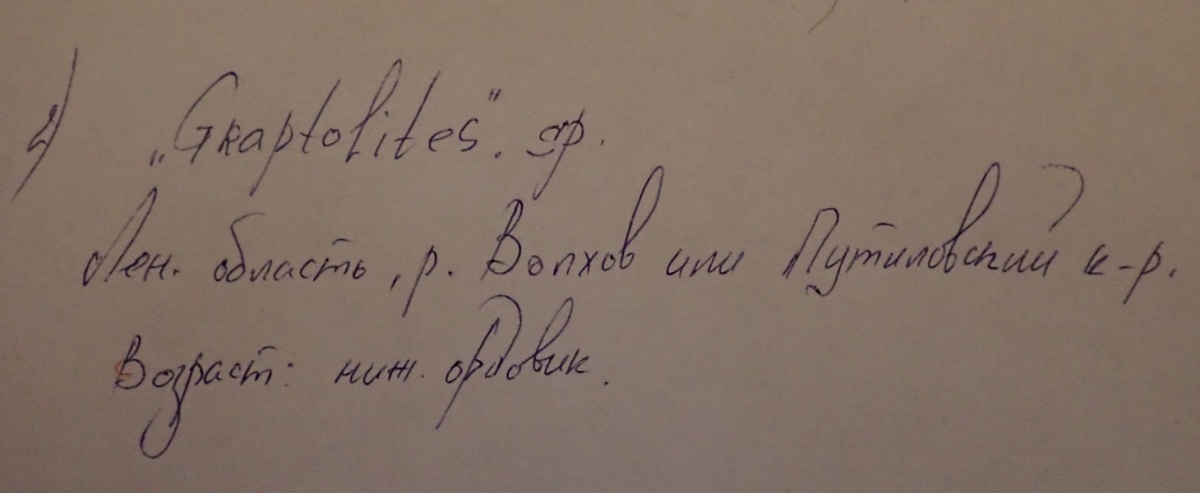 2) „Graptolites". sp.
Лен. область, р. Волхов или Путиловский к-р.
Возраст: ниж. ордовик.